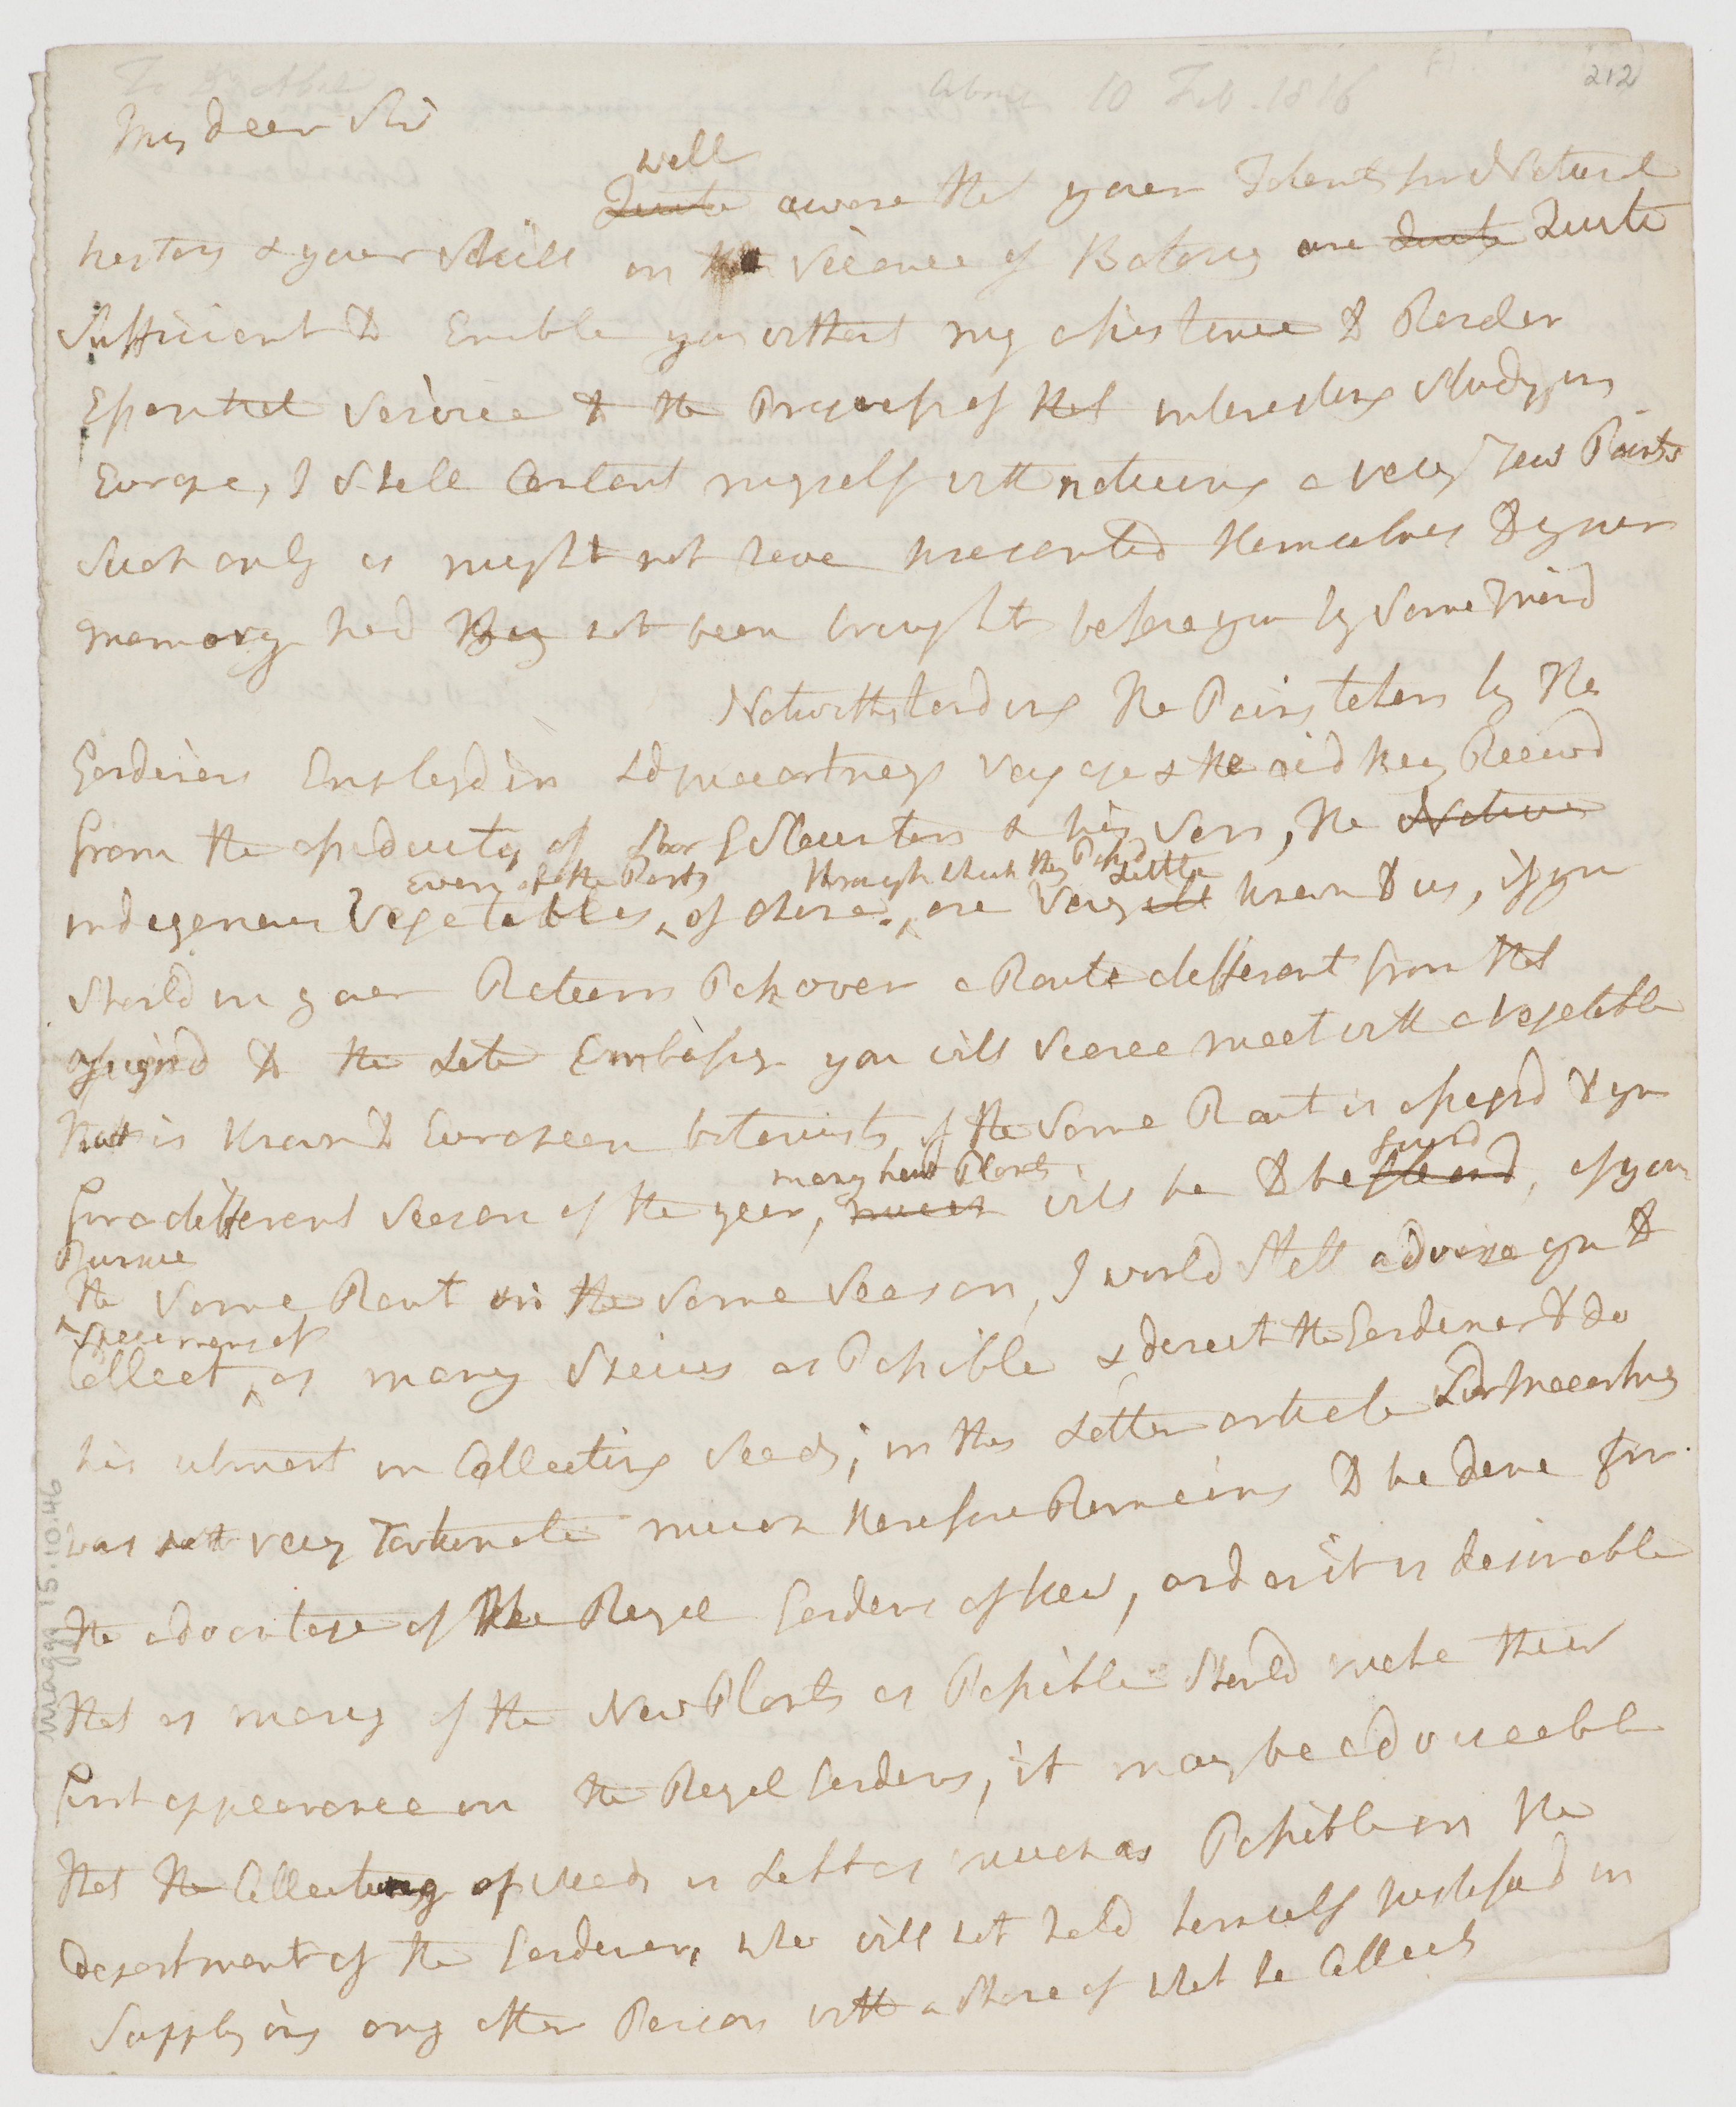 To Dr Abel
about 10 Feb. 1816
212
My dear Sir
well
Quite aware that your Talents for Natural
history & your Skill in the Science of Botany are Quite Quite
Sufficient to Enable you without my assistance to Render
Essential Service to the Progress of that interesting Study in
Europe, I Shall Content myself with noticing a very Few Points
Such only as might not have presented themselves to your
memory had they not been brought before you by Some Friend
Notwithstanding the Pains taken by the
Gardiners Employd in Ld Macartneys Voyage & the aid they Receivd
from the assiduity of Sir G Staunton & his Son, the Native
Even of the Parts through which they Passd Little
indigenous Vegetables of China are Very ill known to us, if you
Should in your Return Pass over a Route different from that
assignd to the Late Embassy you will Scarce meet with a vegetable
that is known to European botanists, if the Same Rout is assignd to you
many new Plants found
for a different Season of the year, much will be to be gleand, if you
Pursue
the Same Rout in the Same Season, I would Still advise you to
Specimens of
Collect as many Species as Possible & direct the Gardener to do
his utmost in Collecting Seeds, in this Latter article Lord Macartney
was not very Fortunate much therefore Remains to be done for
the advantage of the Royal Gardens of Kew, and as it is desirable
that as many of the New Plants as Possible Should make their
first appearance in the Royal Gardens, it may be adviseable
that the Collecting of Seeds is Left as much as Possible in the
department of the Gardener, who will not hold himself justified in
Supplying any other Person with a Share of what he Collects
Maggs 15.10.46